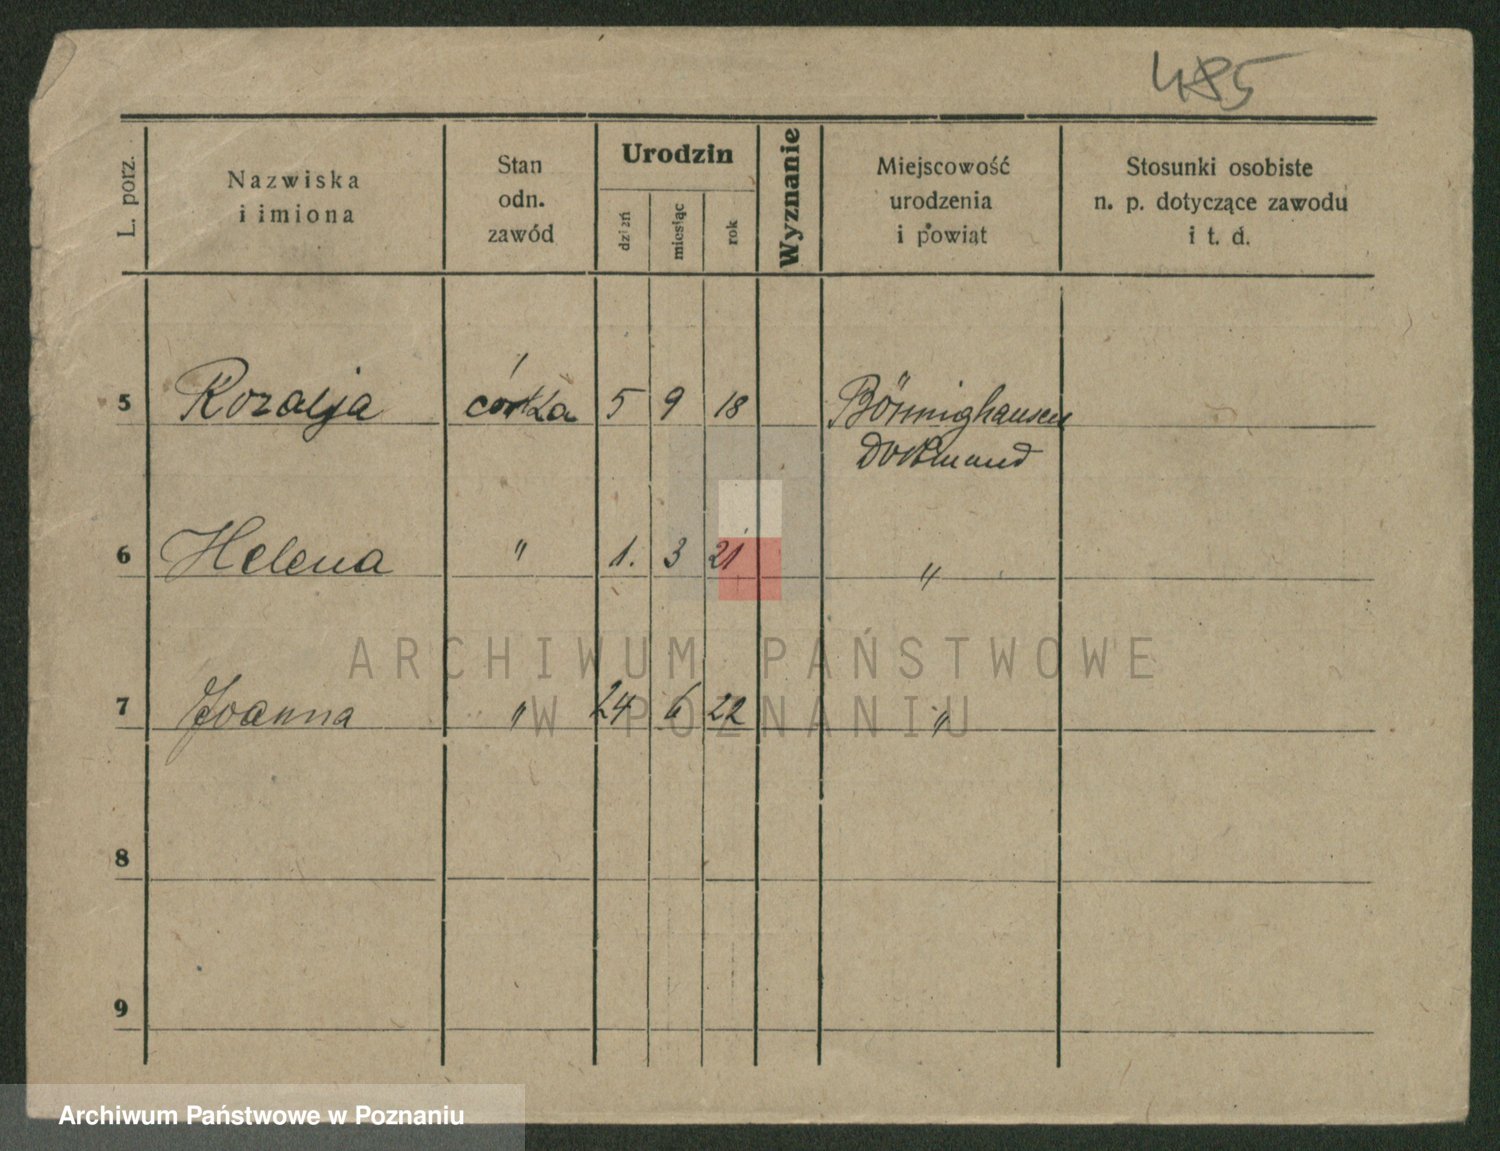 485
L. porz.
Nazwiska
i imiona
Stan
odn.
zawód
Urodzin
dzień
miesiąc
rok
Wyznanie
Miejscowość
urodzenia
i powiat
Stosunki osobiste
n. p. dotyczące zawodu
i t. d.
5 Rozalja córka 5 9 18 Bönninghausen
Dortmund
6 Helena " 1. 3 21 "
7 Joanna " 24 6 22 "
8
9
ARCHIWUM PAŃSTWOWE
W POZNANIU
Archiwum Państwowe w Poznaniu